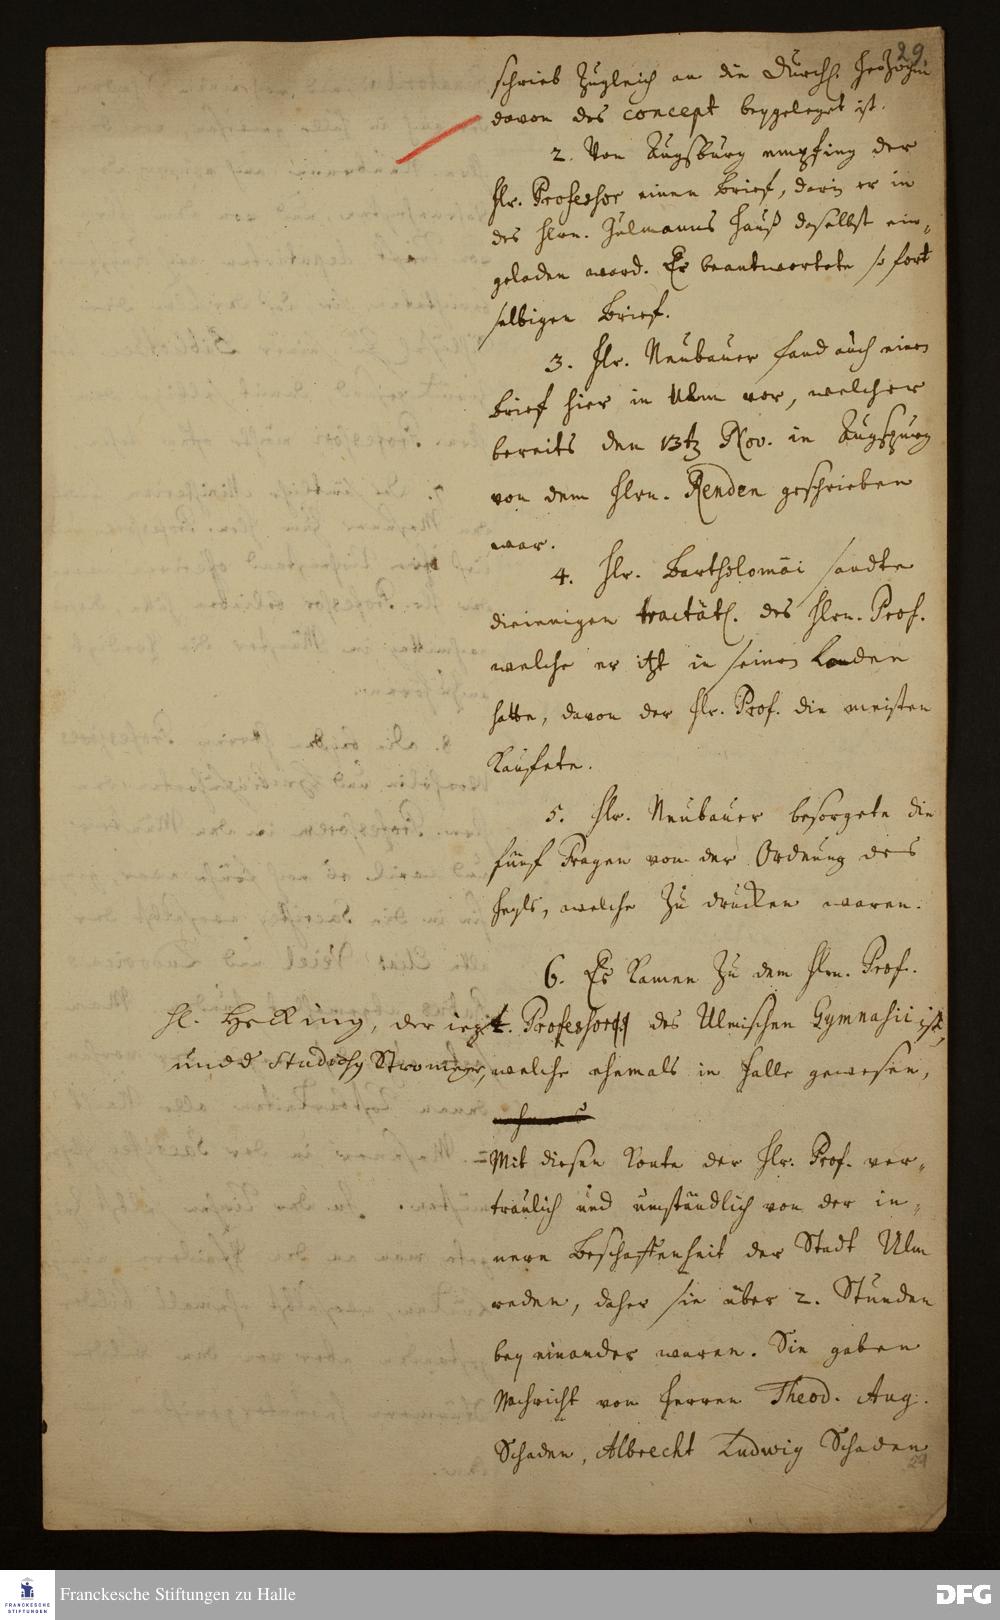 29
schrieb zugleich an die Durchl. Hertzogin
davon das concept beygeleget ist.
2. Von Augsburg empfing der
Hr. Professor einen Brief, darin er in
des Hrn. Hülmanns Hauß daselbst ein-
geladen ward. Er beantwortete so fort
selbigen Brief.
3. Hr. Neubauer fand auch einen
Brief hier in Ulm vor, welcher
bereits den 13ten Nov. in Augspurg
von dem Hrn. Renden geschrieben
war.
4. Hr. Bartholomäi sandte
dieienigen tractätl. des Hrn. Prof.
welche er itzt in seinen Laden
hatte, davon der Hr. Prof. die meisten
kaufete.
5. Hr. Neubauer besorgete die
fünf Fragen von der Ordnung des
Heyls, welche zu drucken waren.
6. Es kamen zu dem Hrn. Prof.
H. Hecking, der iezt. Professor des Ulmischen Gymnasii ist,
und Studiosus Stromeyer, welche ehemals in Halle gewesen,
Mit diesen konte der Hr. Prof. ver-
traulich und umständlich von der in-
nern Beschaffenheit der Stadt Ulm
reden, daher sie über 2. Stunden
bey einander waren. Sie gaben
Nachricht von Herren Theod. Aug.
Schaden, Albrecht Ludwig Schaden
29
FRANCKESCHE
STIFTUNGEN
Franckesche Stiftungen zu Halle
DFG